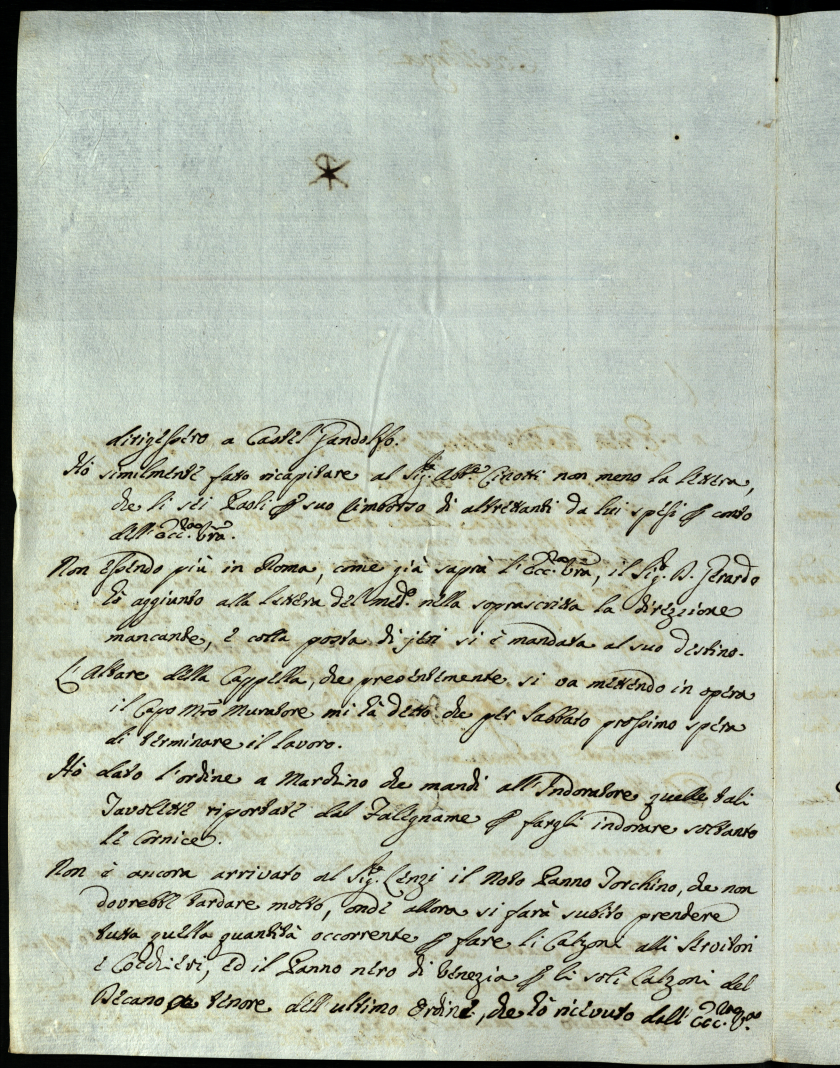 dirigessero a Castel Gandolfo.
Hò similmente fatto ricapitare al Sig.re Abb.e Ciotti non meno la lettera,
che li sei Paoli p suo rimborso di altrettanti da lui spesi p conto
dell'Ecc.za Vra.
Non essendo più in Roma, come già saprà l'Ecc.za Vra, il Sig.r D. Gerardo
hò aggiunto alla lettera del med.o nella soprascritta la direzione
mancante, e colla posta di jeri si è mandata al suo destino.
L'Altare della Cappella, che presentemente si va mettendo in opera
il Capo Mrõ Muratore mi hà detto che per Sabbato prossimo spera
di terminare il lavoro.
Hò dato l'ordine a Marchino che mandi all'Indoratore quelle tali
Tavolette riportate dal Falegname p fargli indorare soltanto
le cornice.
Non è ancora arrivato al Sig.re Lenzi il noto Panno Torchino, che non
dovrebbe tardare molto, onde allora si farà subito prendere
tutta quella quantità occorrente p fare li Calzoni alli Servitori
e Cocchieri, ed il Panno nero di Venezia p li soli Calzoni del
Decano a tenore dell'ultimo ordine, che hò ricevuto dall'Ecc.za V.ra